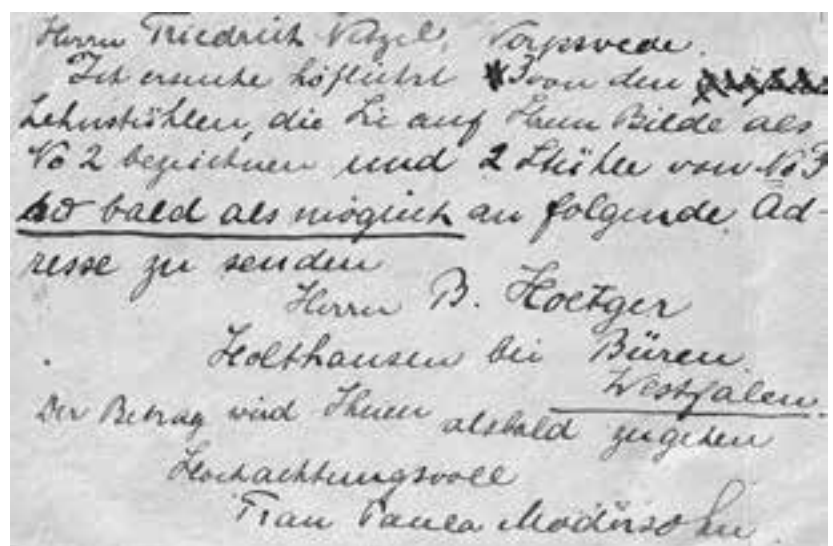 Herrn Friedrich Vogel, Worpswede.
Ich ersuche höflichst 3 von den
Lehnstühlen, die Sie auf Ihrem Bilde als
No 2 bezeichnen und 2 Stühle von No 3
so bald als möglich an folgende Ad-
resse zu senden
Herrn B. Hoetger
Holthausen bei Büren
Westfalen.
Der Betrag wird Ihnen alsbald zugehen
Hochachtungsvoll
Frau Paula Modersohn.